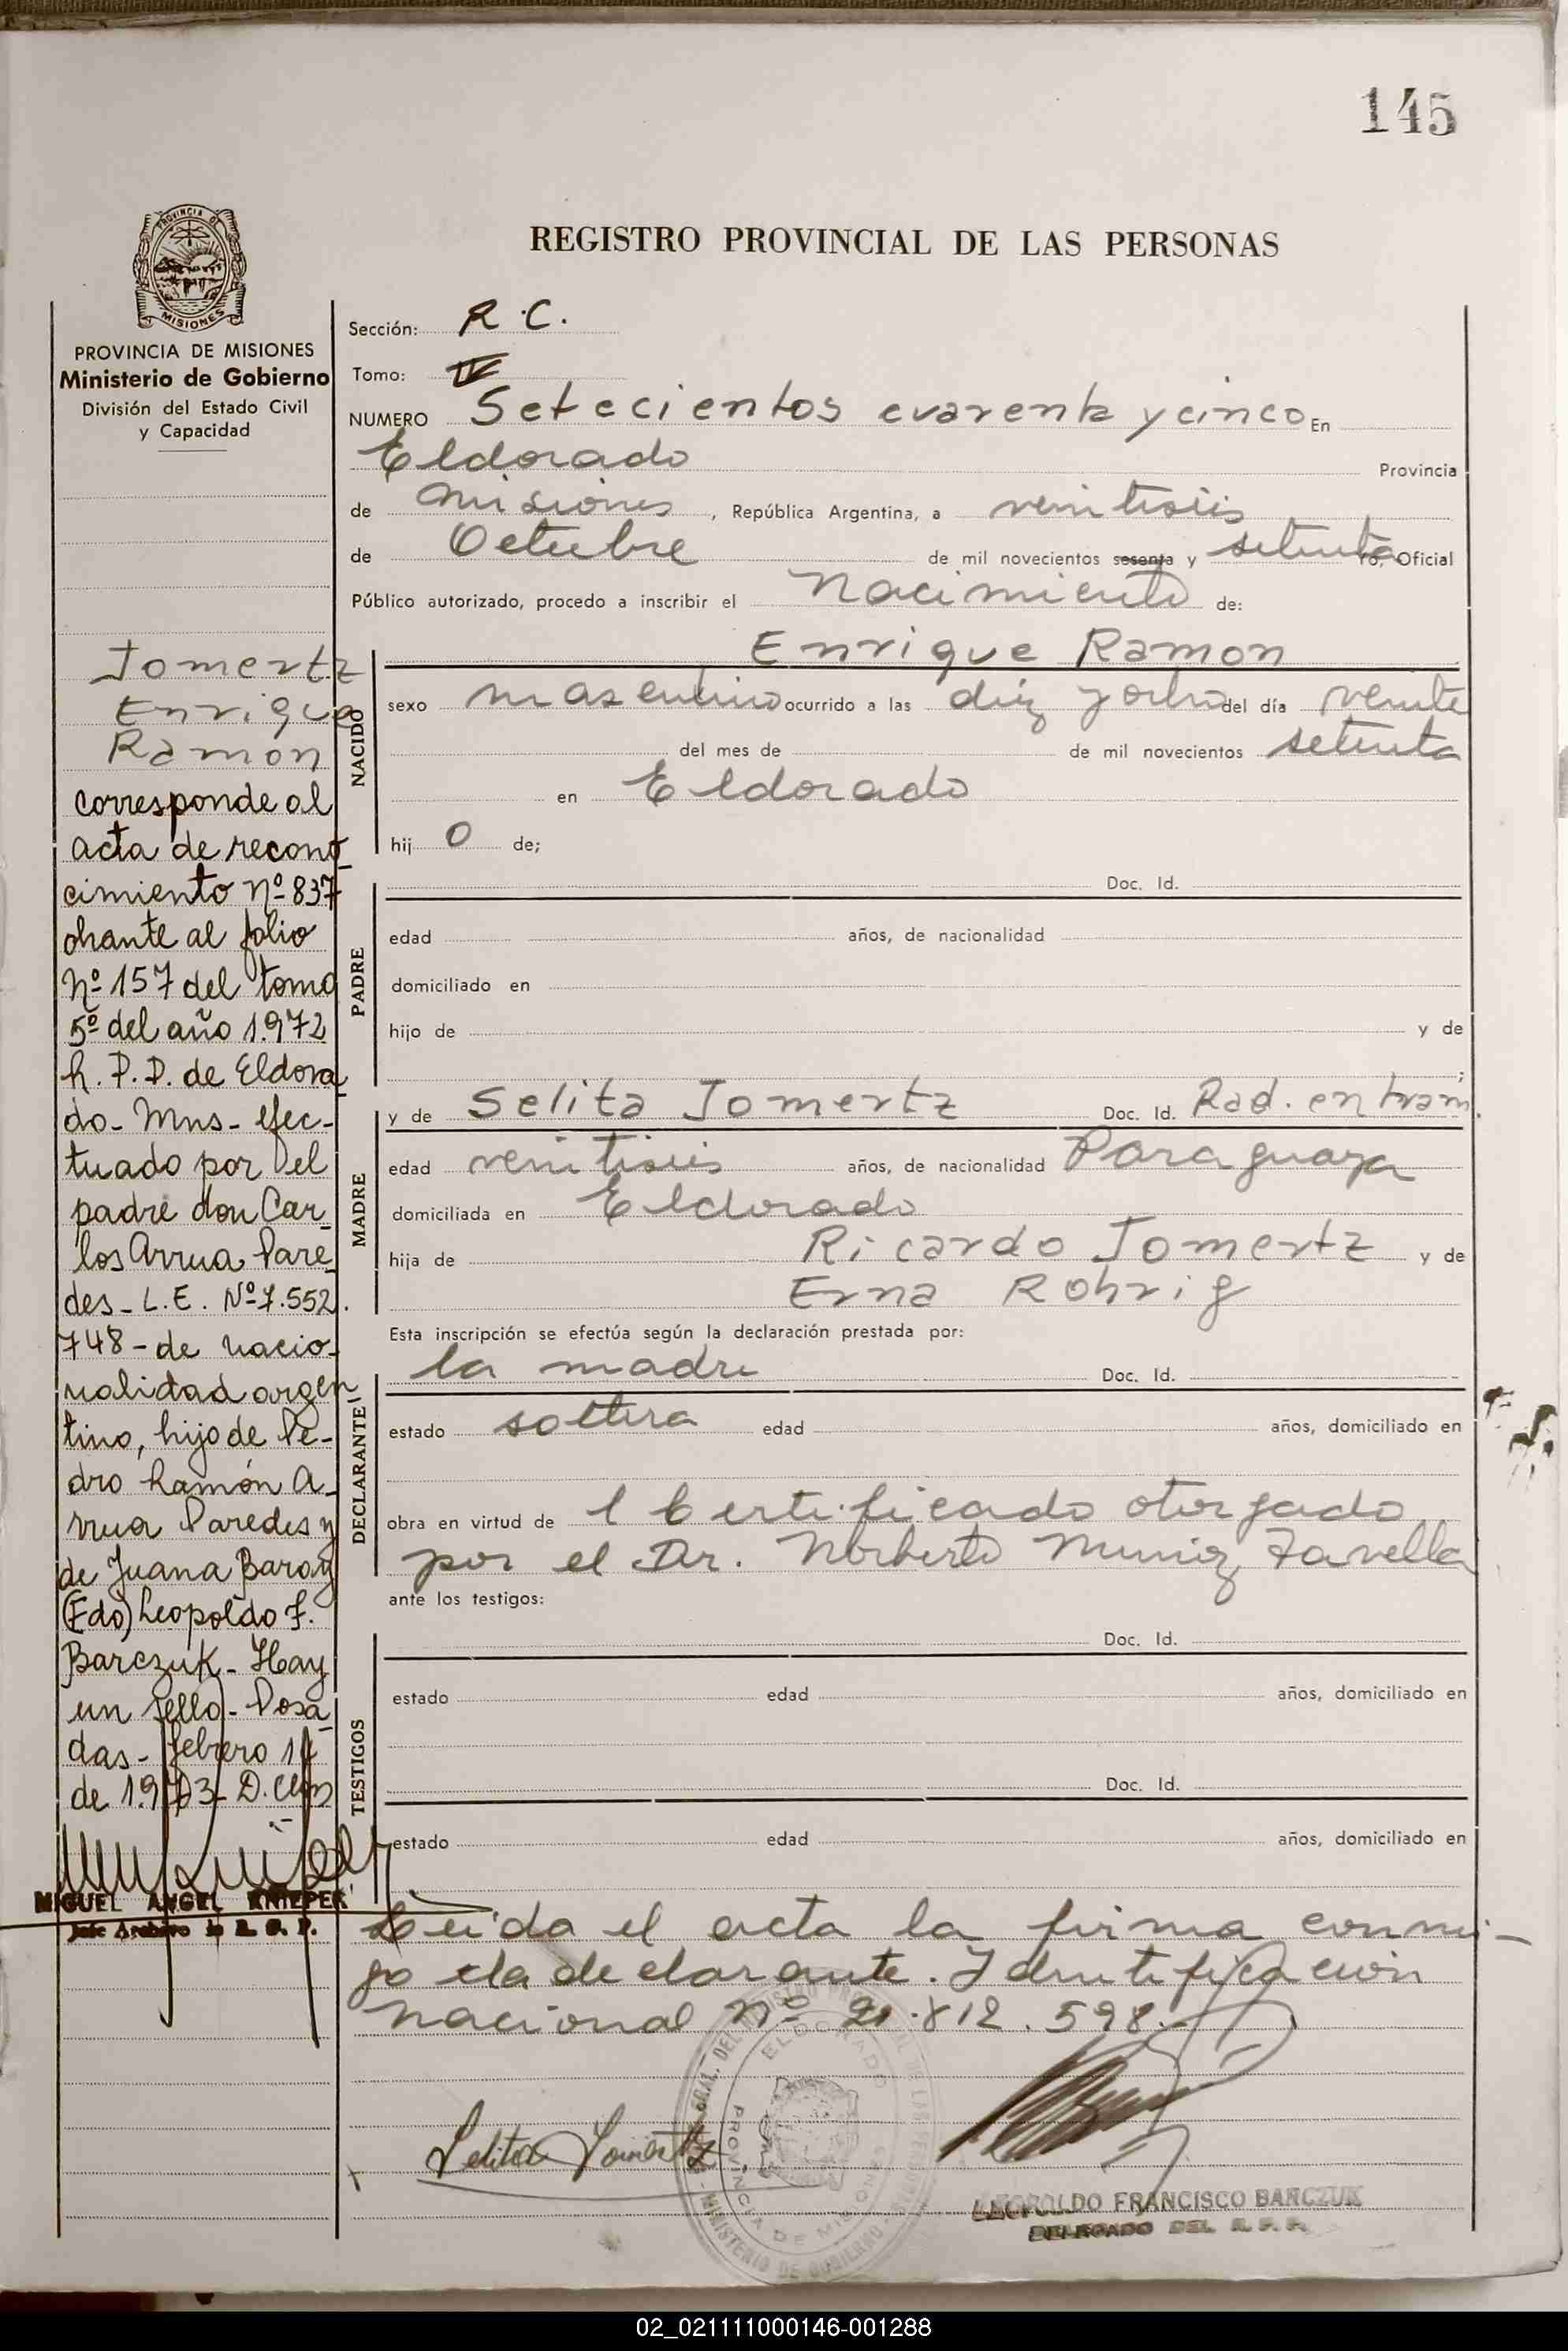 145
REGISTRO PROVINCIAL DE LAS PERSONAS
PROVINCIA DE
MISIONES
PROVINCIA DE MISIONES
Ministerio de Gobierno
División del Estado Civil
y Capacidad
Jomertz
Enrique
Ramon
corresponde al
acta de recono
cimiento Nº 837
obrante al folio
Nº 157 del tomo
5º del año 1.972
R. P. P. de Eldora
do - Mns - efec-
tuado por el
padre don Car
los Arrua Pare
des - L.E. Nº 7.552.
748 - de nacio-
nalidad argen
tino, hijo de Pe-
dro Ramón A-
rrua Paredes y
de Juana Baray
(Fdo) Leopoldo F.
Barczuk - Hay
un sello - Posa
das - febrero 14
de 1.973 -
MIGUEL ANGEL KNIEPER
Jefe Archivo R. P. P.
Sección: R.C.
Tomo: IV
NUMERO Setecientos cuarenta y cinco En
Eldorado Provincia
de Misiones, República Argentina, a veintiseis
de Octubre de mil novecientos sesenta y setenta yo, Oficial
Público autorizado, procedo a inscribir el nacimiento de:
NACIDO
Enrique Ramon
sexo masculino ocurrido a las diez y ocho del día veinte
del mes de de mil novecientos setenta
en Eldorado
hij o de;
PADRE
Doc. Id.
edad años, de nacionalidad
domiciliado en
hijo de y de
;
MADRE
y de Selita Jomertz Doc. Id. Rad. en tram.
edad veintiseis años, de nacionalidad Paraguaya
domiciliada en Eldorado
hija de Ricardo Jomertz y de
Erna Rohrig
Esta inscripción se efectúa según la declaración prestada por:
DECLARANTE
la madre Doc. Id.
estado soltera edad años, domiciliado en
obra en virtud de l Certificado otorgado
por el Dr. Norberto Muniz Favella
ante los testigos:
TESTIGOS
Doc. Id.
estado edad años, domiciliado en
Doc. Id.
estado edad años, domiciliado en
Leida el acta la firma conmi-
go la declarante. Identificacion
nacional Nº 21.812.598.
ELDORADO
PROVINCIA DE MISIONES
MINISTERIO DE GOBIERNO
Selita Jomertz
LEOPOLDO FRANCISCO BARCZUK
DELEGADO DEL R. P. P.
02_021111000146-001288